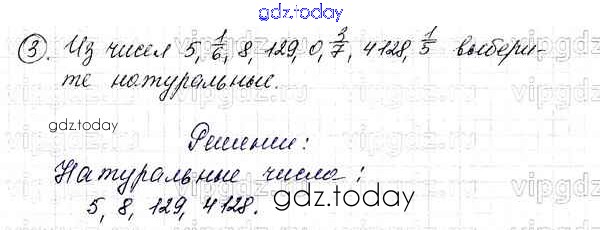 gdz.today
③. Из чисел 5, 1/6, 8, 129, 0, 3/7, 4128, 1/5 выбери-
те натуральные.
gdz.today
Решение:
Натуральные числа:
5, 8, 129, 4128.
gdz.today